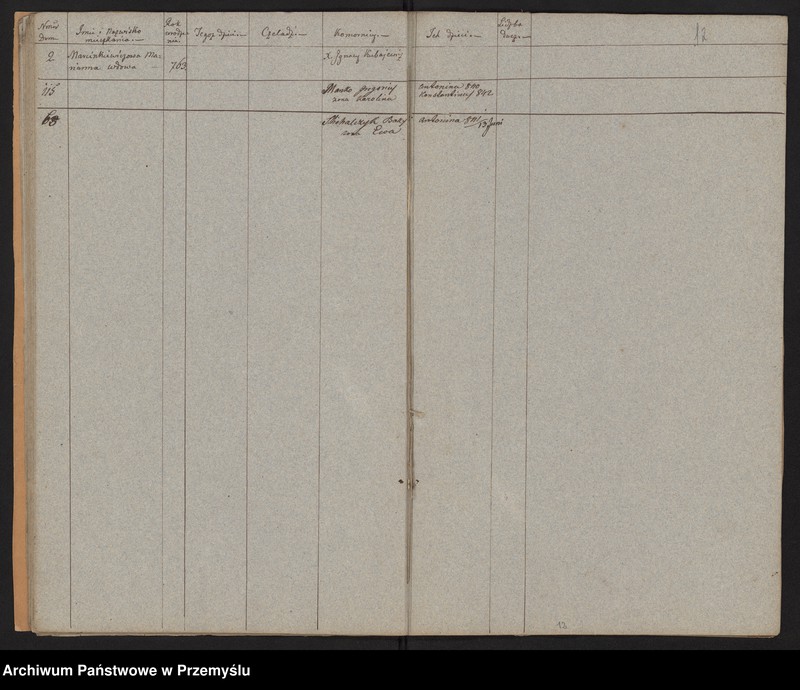 Nrus Dom.
Imie i Nazwisko mieszkania
Rok urodzenia
Tegoż dzieci
Czeladź
Komornicy
Ich dzieci
Liczba Dusz
12
2
Marcinkiewiczowa Ma-
rianna wdowa
763
X. Ignacy
115
Marko
żona Karolina
Antonina 840
Konstantinus 842
68
Michalczyk
żona Ewa
Antonina 841/13 Juni
12
Archiwum Państwowe w Przemyślu